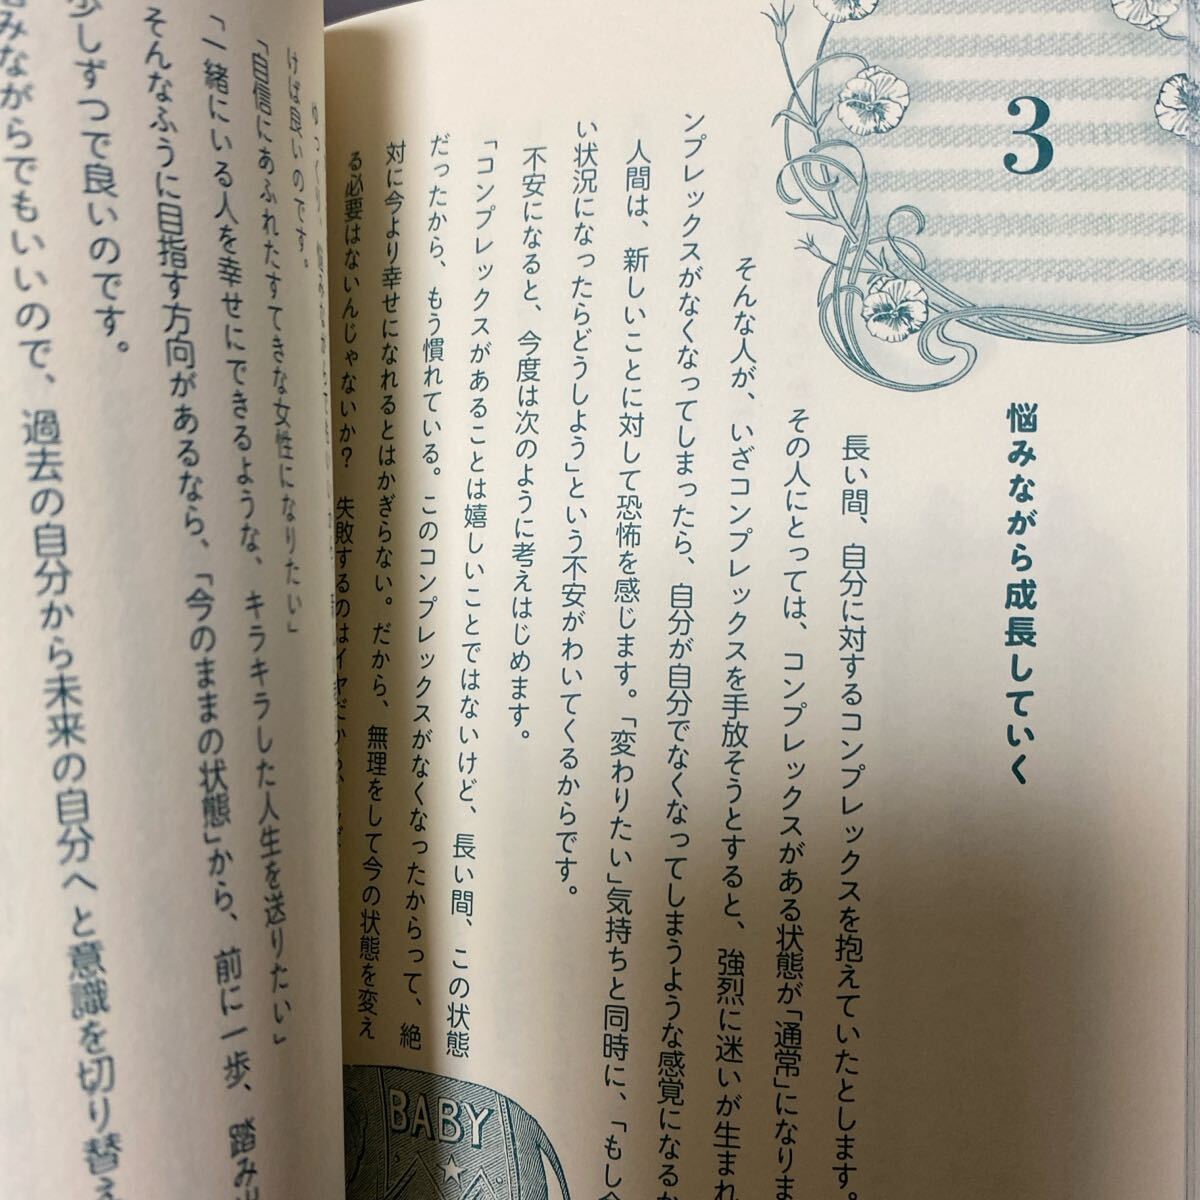 3
悩みながら成長していく
長い間、自分に対するコンプレックスを抱えていたとします。
その人にとっては、コンプレックスがある状態が「通常」になりま
そんな人が、いざコンプレックスを手放そうとすると、強烈に迷いが生まれ
ンプレックスがなくなってしまったら、自分が自分でなくなってしまうような感覚になるか
人間は、新しいことに対して恐怖を感じます。「変わりたい」気持ちと同時に、「もし
い状況になったらどうしよう」という不安がわいてくるからです。
不安になると、今度は次のように考えはじめます。
「コンプレックスがあることは嬉しいことではないけど、長い間、この状態
だったから、もう慣れている。このコンプレックスがなくなったからって、絶
対に今より幸せになれるとはかぎらない。だから、無理をして今の状態を変え
る必要はないんじゃないか？　失敗するのはイヤだか
BABY
けば良いのです。
「自信にあふれたすてきな女性になりたい」
「一緒にいる人を幸せにできるような、キラキラした人生を送りたい」
そんなふうに目指す方向があるなら、「今のままの状態」から、前に一歩、踏み
少しずつで良いのです。
みながらでもいいので、過去の自分から未来の自分へと意識を切り替え